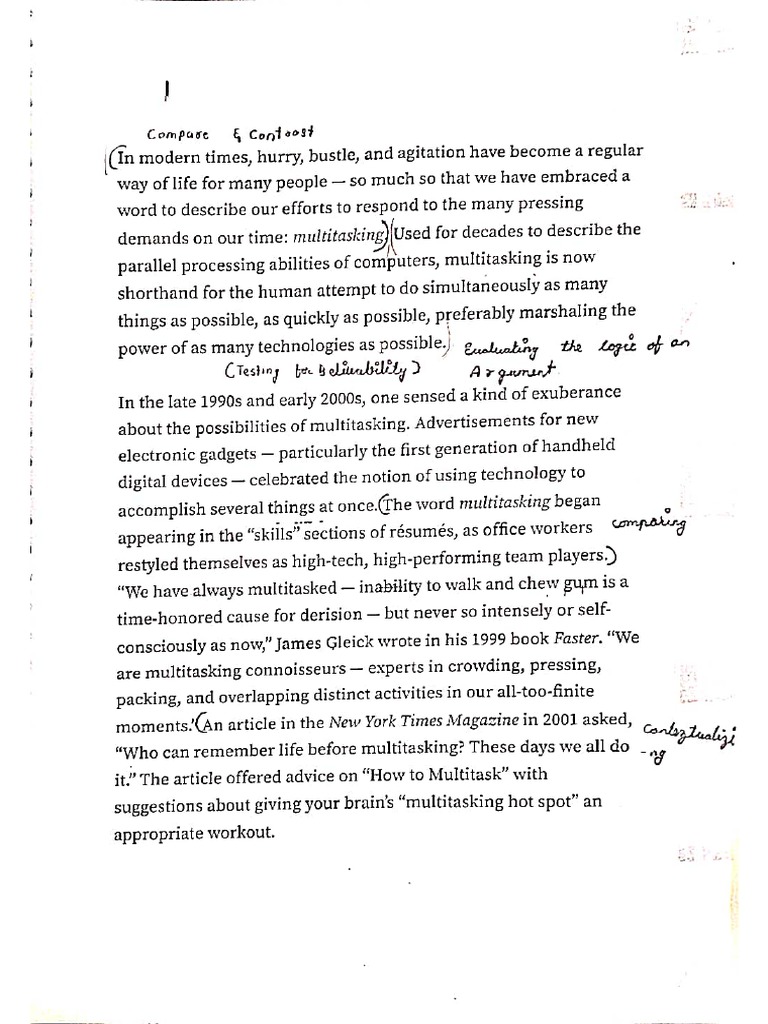 1
Compare & Contrast
(In modern times, hurry, bustle, and agitation have become a regular
way of life for many people — so much so that we have embraced a
word to describe our efforts to respond to the many pressing
demands on our time: multitasking.)(Used for decades to describe the
parallel processing abilities of computers, multitasking is now
shorthand for the human attempt to do simultaneously as many
things as possible, as quickly as possible, preferably marshaling the
power of as many technologies as possible.) Evaluating the logic of an
(Testing for Reliability) Argument
In the late 1990s and early 2000s, one sensed a kind of exuberance
about the possibilities of multitasking. Advertisements for new
electronic gadgets — particularly the first generation of handheld
digital devices — celebrated the notion of using technology to
accomplish several things at once.(The word multitasking began
appearing in the “skills” sections of résumés, as office workers comparing
restyled themselves as high-tech, high-performing team players.)
“We have always multitasked — inability to walk and chew gum is a
time-honored cause for derision — but never so intensely or self-
consciously as now,” James Gleick wrote in his 1999 book Faster. “We
are multitasking connoisseurs — experts in crowding, pressing,
packing, and overlapping distinct activities in our all-too-finite
moments.”(An article in the New York Times Magazine in 2001 asked, contextualizi
“Who can remember life before multitasking? These days we all do -ng
it.” The article offered advice on “How to Multitask” with
suggestions about giving your brain’s “multitasking hot spot” an
appropriate workout.